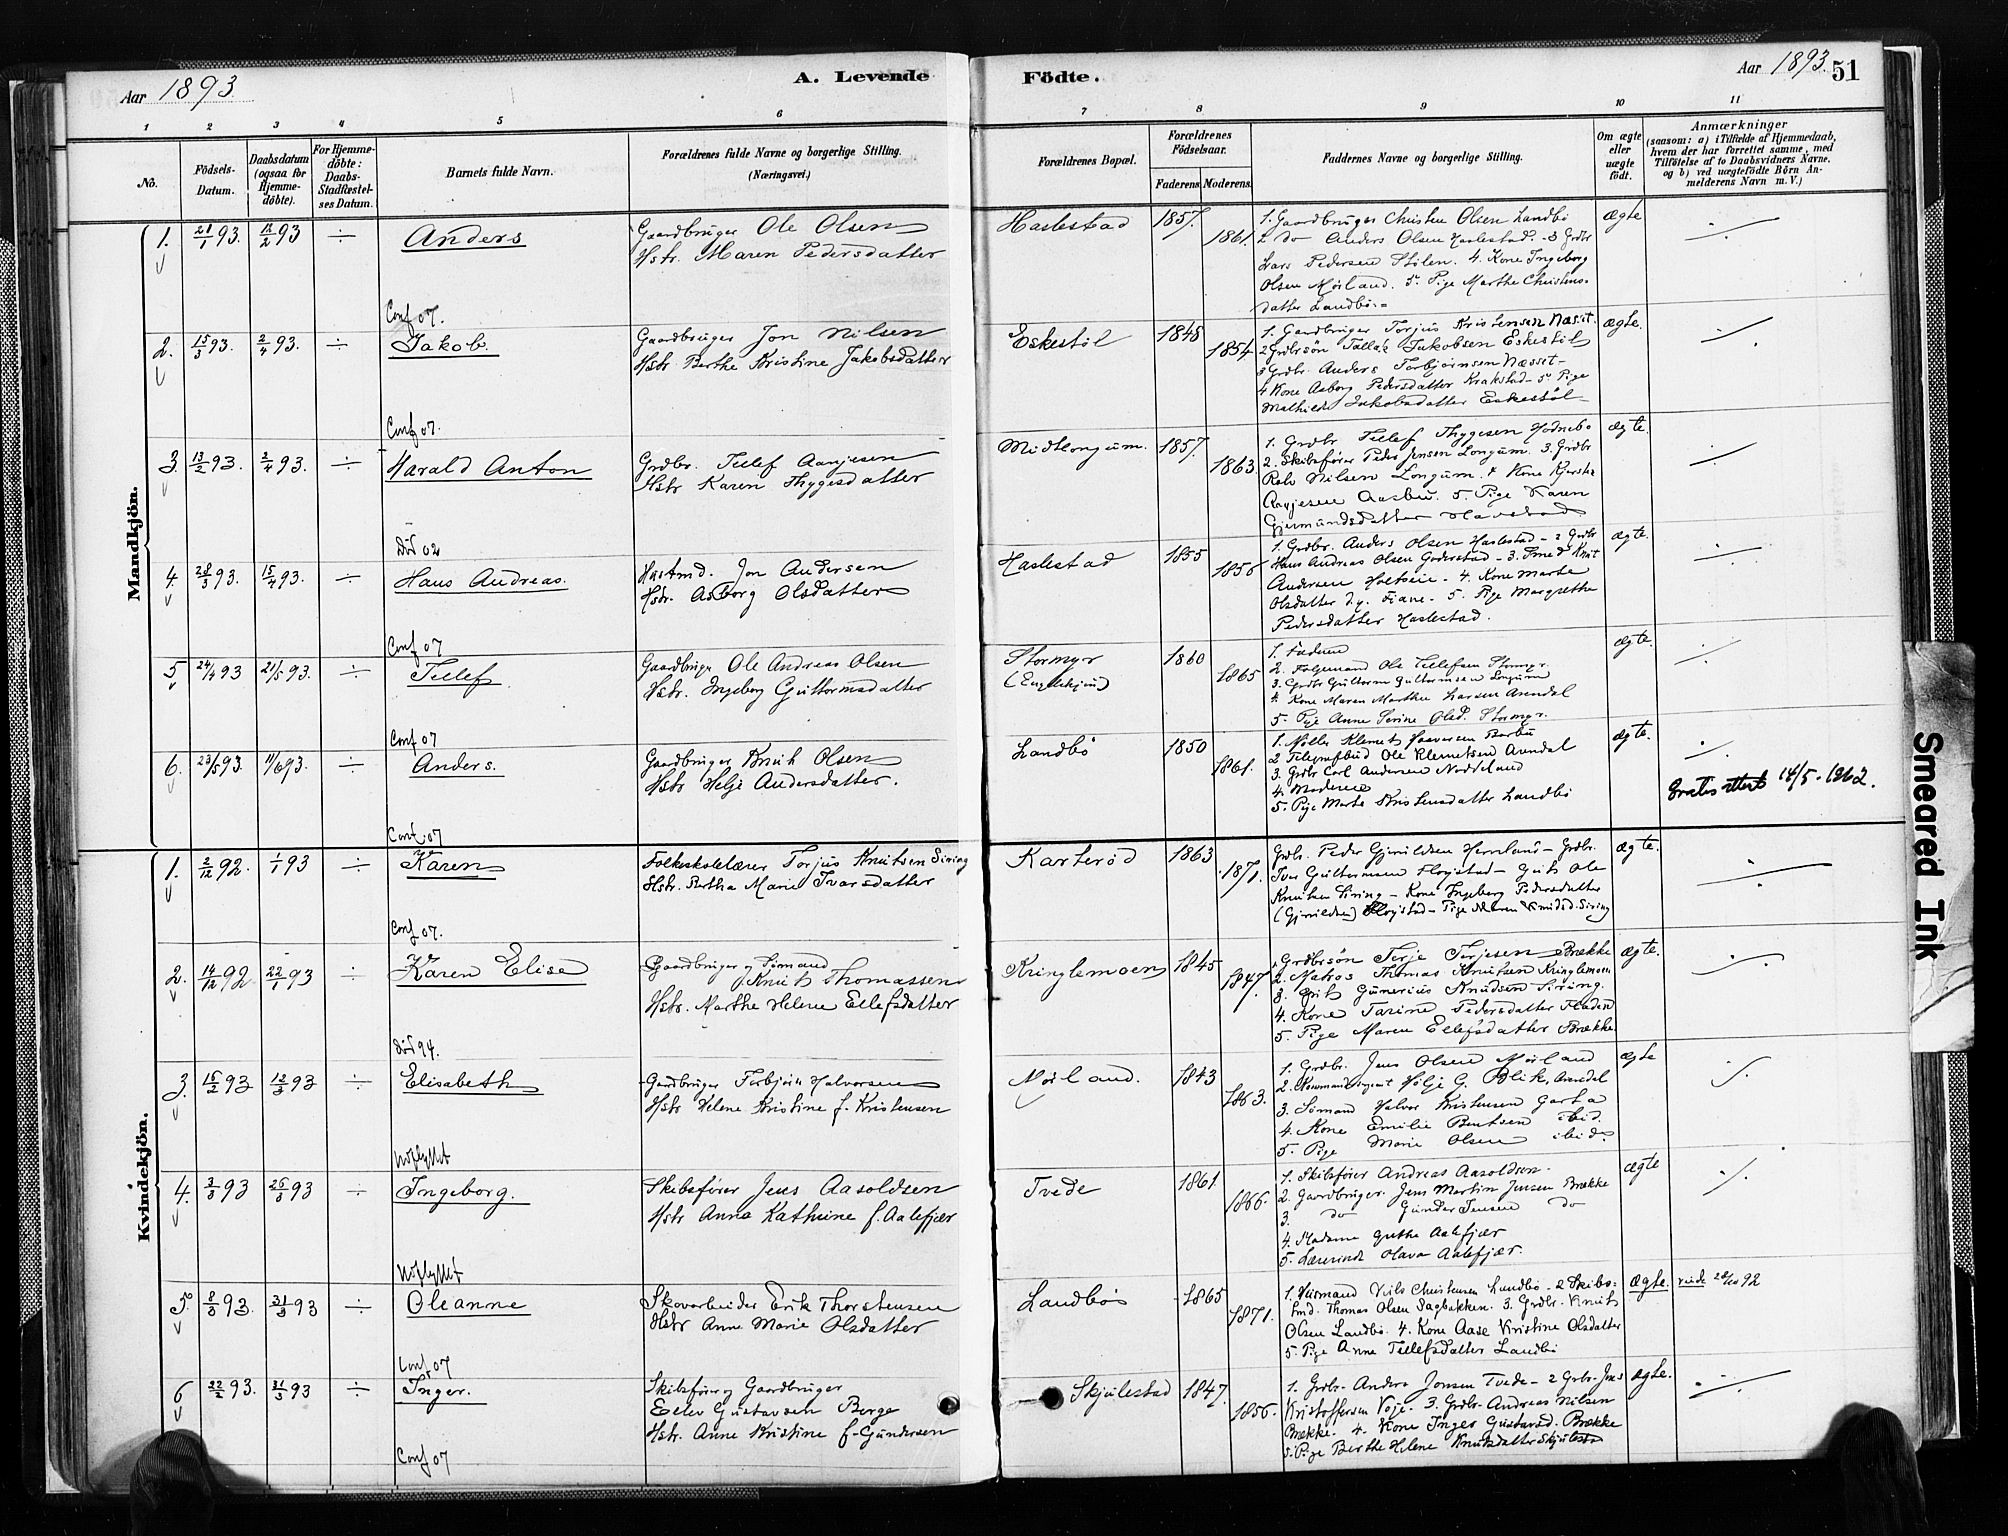 Aar 1893
A. Levende
Födte.
Aar 1893. 51
1 2 3 4 5 6 7 8 9 10 11
No.
Födsels-
Datum.
Daabsdatum
(ogsaa for
Hjemme-
döbte).
For Hjemme-
döbte:
Daabs-
Stadfæstel-
ses Datum.
Barnets fulde Navn.
Forældrenes fulde Navne og borgerlige Stilling.
(Næringsvei.)
Forældrenes Bopæl.
Forældrenes
Födselsaar.
Faderens. Moderens.
Faddernes Navne og borgerlige Stilling.
Om ægte
eller
uægte
födt.
Anmærkninger
(saasom: a) i Tilfælde af Hjemmedaab,
hvem der har forrettet samme, med
Tilföielse af to Daabsvidners Navne,
og b) ved uægtefödte Börn An-
melderens Navn m. V.)
Mandkjön.
1. 21/1 93. 12/2 93 ÷ Anders
Gaardbruger Ole Olsen
Hstr. Maren Pedersdatter
Haslestad 1857. 1861.
1. Gaardbruger Christen Olsen Landbö
2 do Anders Olsen Haslestad. - 3 Grdbr
Lars Pedersen Stölen. 4. Kone Ingeborg
Olsen Mörland. 5. Pige Marthe Christens-
datter Landbö
ægte ÷
Conf 07.
2. 15/3 93. 2/4 93. ÷ Jakob.
Gaardbruger Jon Nilsen
Hstr. Berthe Kristine Jakobsdatter
Eskestöl 1848 1854
1. Gaardbruger Torjus Kristensen Næset.
2 Grdbrsön Tallak Jakobsen Eskestöl
3 Grdbr. Anders Torbjörnsen Næsset -
4 Kone Asborg Pedersdatter Krakstad - 5 Pige
Mathilde Jakobsdatter Eskestöl
ægte. ÷
Conf 07.
3. 13/2 93. 2/4 93. ÷ Harald Anton
Grdbr. Tellef Aanjesen
Hstr Karen Thygesdatter
Midtlongum. 1857. 1863.
1. Grdbr Tellef Thygesen Hodnebo
2. Skibsförer Peder Jensen Longum. 3. Grdbr
Nilsen Longum. 4 Kone
Aanjesen 5. Pige Karen
Gjermundsdatter
ægte. ÷
Död 02
4. 28/3 93. 15/4 93. ÷ Hans Andreas.
Husmd. Jon Andersen
Hstr. Asborg Olsdatter
Haslestad 1855 1856
1. Grdbr. Anders Olsen Haslestad - 2 Grdbr
Hans Andreas Olsen - 3. Smed Knut
Andersen - 4. Kone Marte
Olsdatter Fiane - 5. Pige Margrethe
Pedersdatter Haslestad.
ægte. ÷
Conf 07
5 24/4 93 21/5 93. ÷ Tellef
Gaardbruger Ole Andreas Olsen
Hstr. Ingeborg Guttormsdatter
Stormyr 1860 1865
1. Faderen
2. Ole Tellefsen Stormyr.
3. Grdbr Guttorm Guttormsen Longum
4. Kone Maren Marthea Larsen Arendal
5. Pige Anne Serine Olsd. Stormyr.
ægte. ÷
Conf 07
6. 23/5 93. 11/6 93. ÷ Anders.
Gaardbruger Knut Olsen
Hstr Helje Andersdatter.
Landbö 1850 1861.
1. Möller Klemet Halvorsen Barbu
2 Telegrafbud Ole Klemetsen Arendal
3. Grdbr Carl Andersen Noddeland
4. Moderen
5. Pige Marte Kristensdatter Landbö
ægte. ÷
attest 14/5 - 1962.
Conf. 07
Kvindekjön.
1. 2/12 92. 1/1 93 ÷ Karen
Folkeskolelærer Torjus Knutsen Siring
Hstr. Bertha Marie Ivarsdatter
Karteröd 1863 1871.
Grdbr. Peder Gjeruldsen - Grdbr.
Iver Guttormsen Flöystad - Gift Ole
Knutsen Siring - Kone Ingeborg Pedersdatter
(Gjeruldsen) Flöystad - Pige Maren Knudsd. Siring
ægte. ÷
Conf 07.
2. 14/12 92. 22/1 93 ÷ Karen Elise
Gaardbruger og Sömand
Knut Thomassen
Hstr. Marthe Helene Ellefsdatter
Kringlemoen 1845 1847.
1 Grdbrsön Terje Terjesen Brække
2. Matros Thomas Knutsen Kringlemoen
3. Gift Gunerius Knudsen Siring.
4. Kone Tarine Pedersdatter
5. Pige Maren Ellefsdatter Brække
ægte. ÷
Död 94.
3. 15/2 93 12/3 93 ÷ Elisabeth
Gardbruger Torbjörn Halvorsen
Hstr Helene Kristine f. Kristensen
Mörland. 1843 1863.
1. Grdbr. Jens Olsen Mörland
2. Hölje G. Blik, Arendal
3. Sömand Halvor Kristensen Garta
4. Kone Emilie Bentsen ibid.
5. Pige Marie Olsen ibid.
ægte ÷
Udflyttet
4. 3/3 93 26/3 93 ÷ Ingeborg.
Skibsförer Jens Aasoldsen
Hstr Anna Kathrine f. Aalefjær
Tvede 1861 1866.
1. Skibsförer Andreas Aasoldsen.
2. Gaardbruger Jens Martin Jensen Brække
3. do Gunder Jensen do
4. Madame Grethe Aalefjær
5. Lærerinde Olava Aalefjær.
ægte ÷
Udflyttet
5. 8/3 93. 31/3 93 ÷ Oleanne
Skovarbeider Erik Thorstensen
Hstr Anne Marie Olsdatter
Landbö 1865 1871.
1. Husmand Nils Christensen Landbö - 2 Skibs-
tmd. Thomas Olsen Sagbakken. 3. Grdbr. Knut
Olsen Landbö. 4. Kone Aase Kristine Olsdatter
5. Pige Anne Tellefsdatter Landbö
ægte. viede 28/10 92
Conf 07
6 22/2 93. 31/3 93 ÷ Inger.
Skibsförer og Gaardbruger
Ellev Gustavsen Berge
Hstr. Anne Kristine f. Gundersen
Skjulestad 1847. 1856.
1. Grdbr - Anders Jonsen Tvede - 2 Grbr. Jens
Kristoffersen Voje. 3. Grdbr Andreas Nilsen
Brække. 4. Kone Inger Gustavsd. Brække
5. Pige Berthe Helene Knutsdatter Skjulestad
ægte. ÷
Conf 07
Smeared Ink